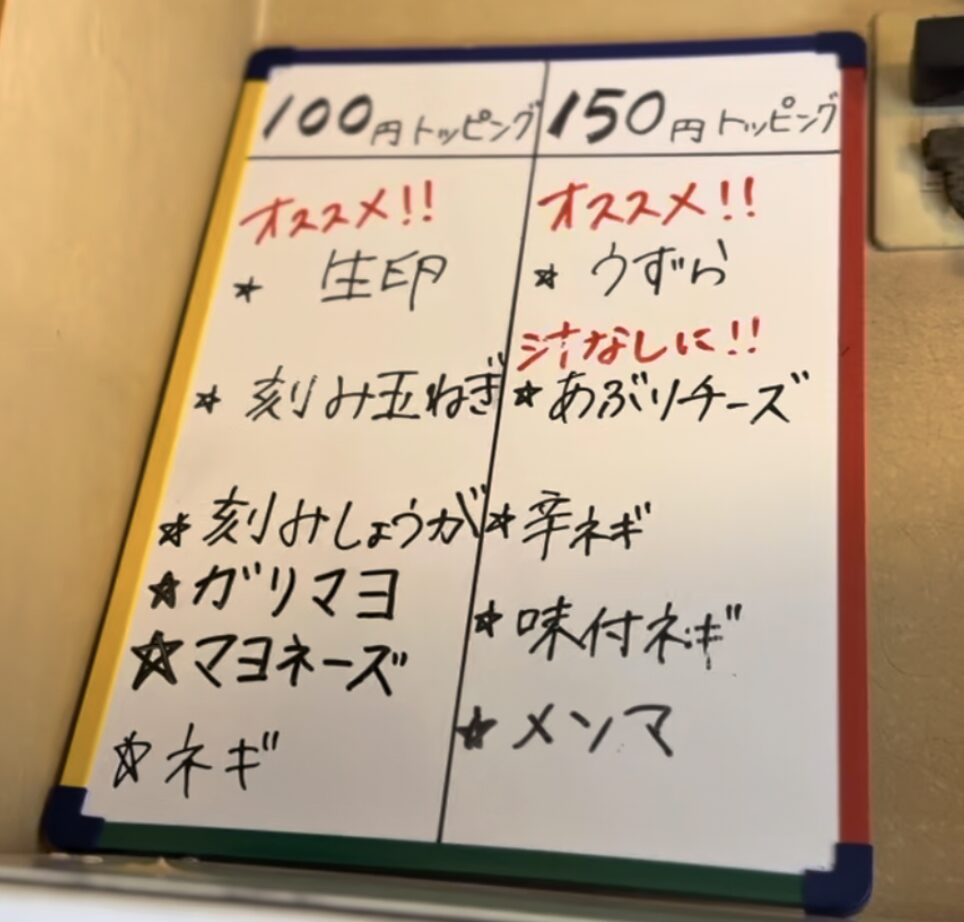 100円トッピング
オススメ!!
☆ 生卵
☆ 刻み玉ねぎ
☆ 刻みしょうが
☆ ガリマヨ
☆ マヨネーズ
☆ ネギ
150円トッピング
オススメ!!
☆ うずら
汁なしに!!
☆ あぶりチーズ
☆ 辛ネギ
☆ 味付ネギ
☆ メンマ